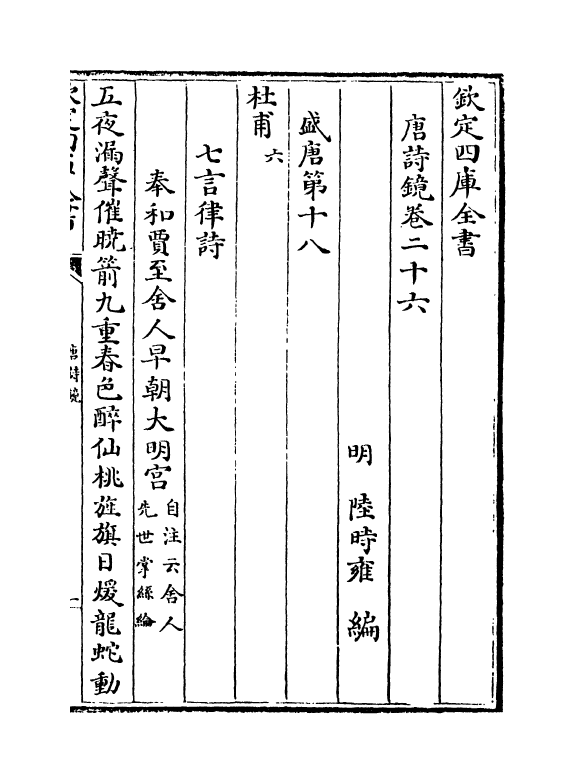 欽定四庫全書
唐詩鏡卷二十六
明 陸時雍 編
盛唐第十八
杜甫 六
七言律詩
奉和賈至舍人早朝大明宮 自注云舍人
先世掌絲綸
五夜漏聲催曉箭九重春色醉仙桃旌旗日煖龍蛇動
唐詩鏡
一